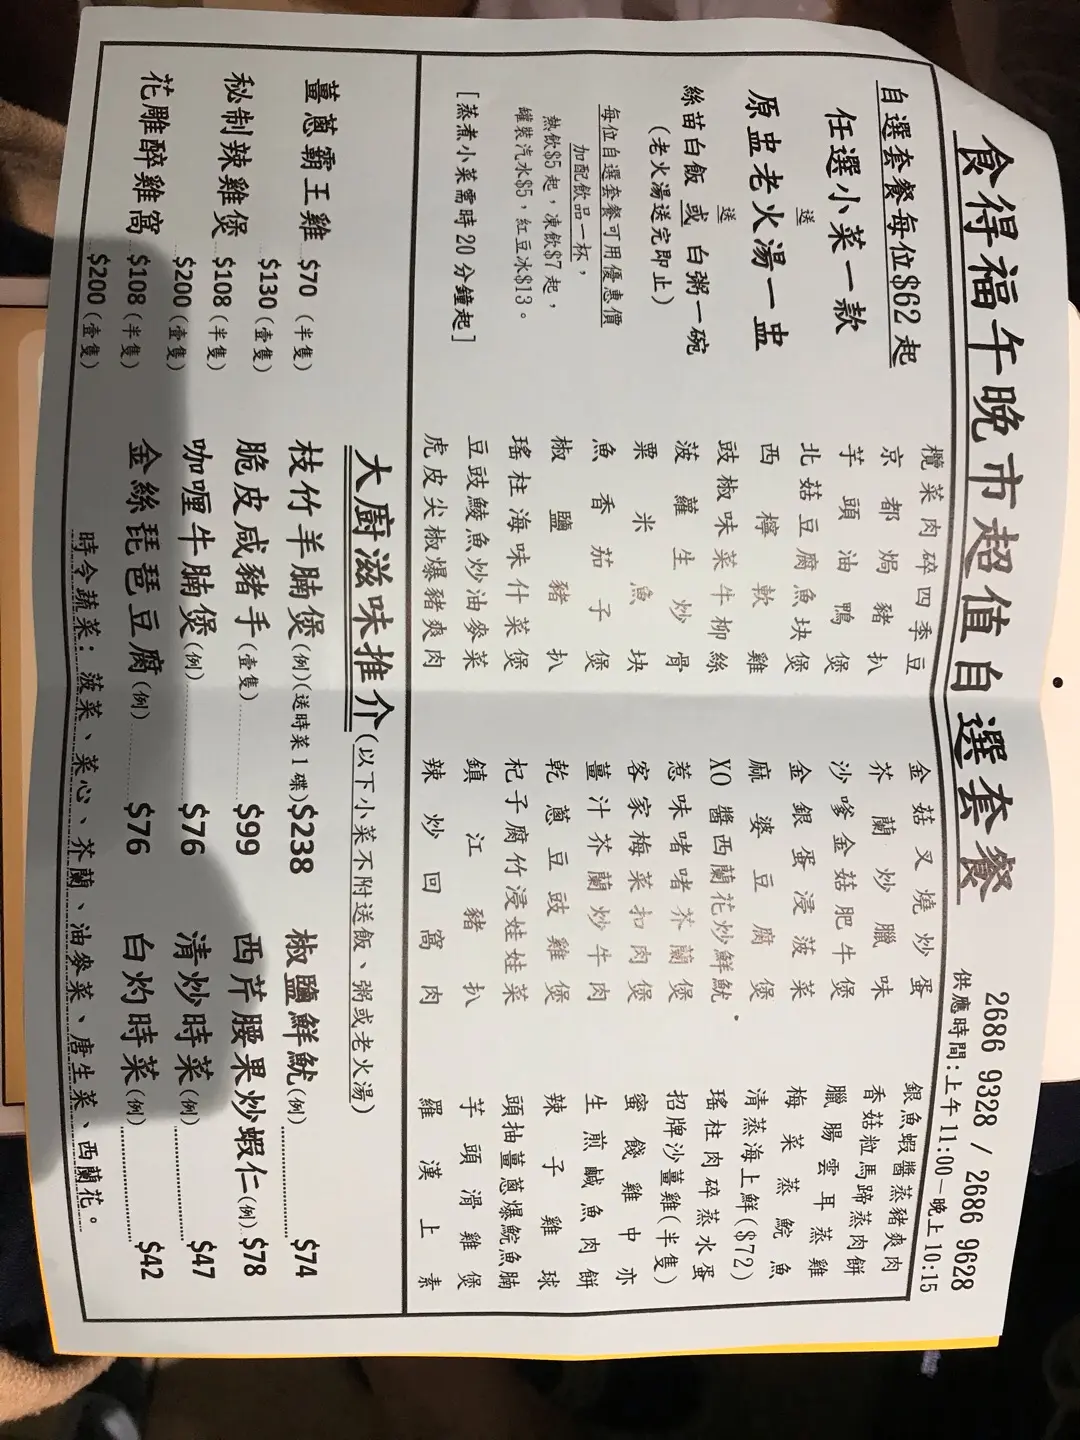 食得福午晚市超值自選套餐
2686 9328 / 2686 9628
供應時間:上午11:00－晚上10:15
自選套餐每位$62起
任選小菜一款
送
原盅老火湯一盅
送
絲苗白飯 或 白粥一碗
(老火湯送完即止)
每位自選套餐可用優惠價
加配飲品一杯，
熱飲$5起，凍飲$7起，
罐裝汽水$5，紅豆冰$13。
[蒸煮小菜需時20分鐘起]
欖菜肉碎四季豆
京都焗豬扒
芋頭油鴨煲
北菇豆腐魚块煲
西檸軟雞
豉椒味菜牛柳絲
菠蘿生炒骨
粟米魚块
魚香茄子煲
椒鹽豬扒
瑤柱海味什菜煲
豆豉鯪魚炒油麥菜
虎皮尖椒爆豬爽肉
金菇叉燒炒蛋
芥蘭炒臘味
沙嗲金菇肥牛煲
金銀蛋浸菠菜
麻婆豆腐煲
XO醬西蘭花炒鮮魷
惹味啫啫芥蘭煲
客家梅菜扣肉煲
薑汁芥蘭炒牛肉
乾蔥豆豉雞煲
杞子腐竹浸娃娃菜
鎮江豬扒
辣炒回窩肉
銀魚蝦醬蒸豬爽肉
香菇粒馬蹄蒸肉餅
臘腸雲耳蒸雞
梅菜蒸鯇魚
清蒸海上鮮($72)
瑤柱肉碎蒸水蛋
招牌沙薑雞(半隻)
蜜餞雞中亦
生煎鹹魚肉餅
辣子雞球
頭抽薑蔥爆鯇魚腩
芋頭滑雞煲
羅漢上素
大廚滋味推介(以下小菜不附送飯、粥或老火湯)
薑蔥霸王雞 $70 (半隻)
$130 (壹隻)
秘制辣雞煲 $108 (半隻)
$200 (壹隻)
花雕醉雞窩 $108 (半隻)
$200 (壹隻)
枝竹羊腩煲(例)(送時菜1碟)$238
脆皮咸豬手(壹隻) $99
咖喱牛腩煲(例) $76
金絲琵琶豆腐(例) $76
椒鹽鮮魷(例) $74
西芹腰果炒蝦仁(例) $78
清炒時菜(例) $47
白灼時菜(例) $42
時令蔬菜：菠菜、菜心、芥蘭、油麥菜、唐生菜、西蘭花。